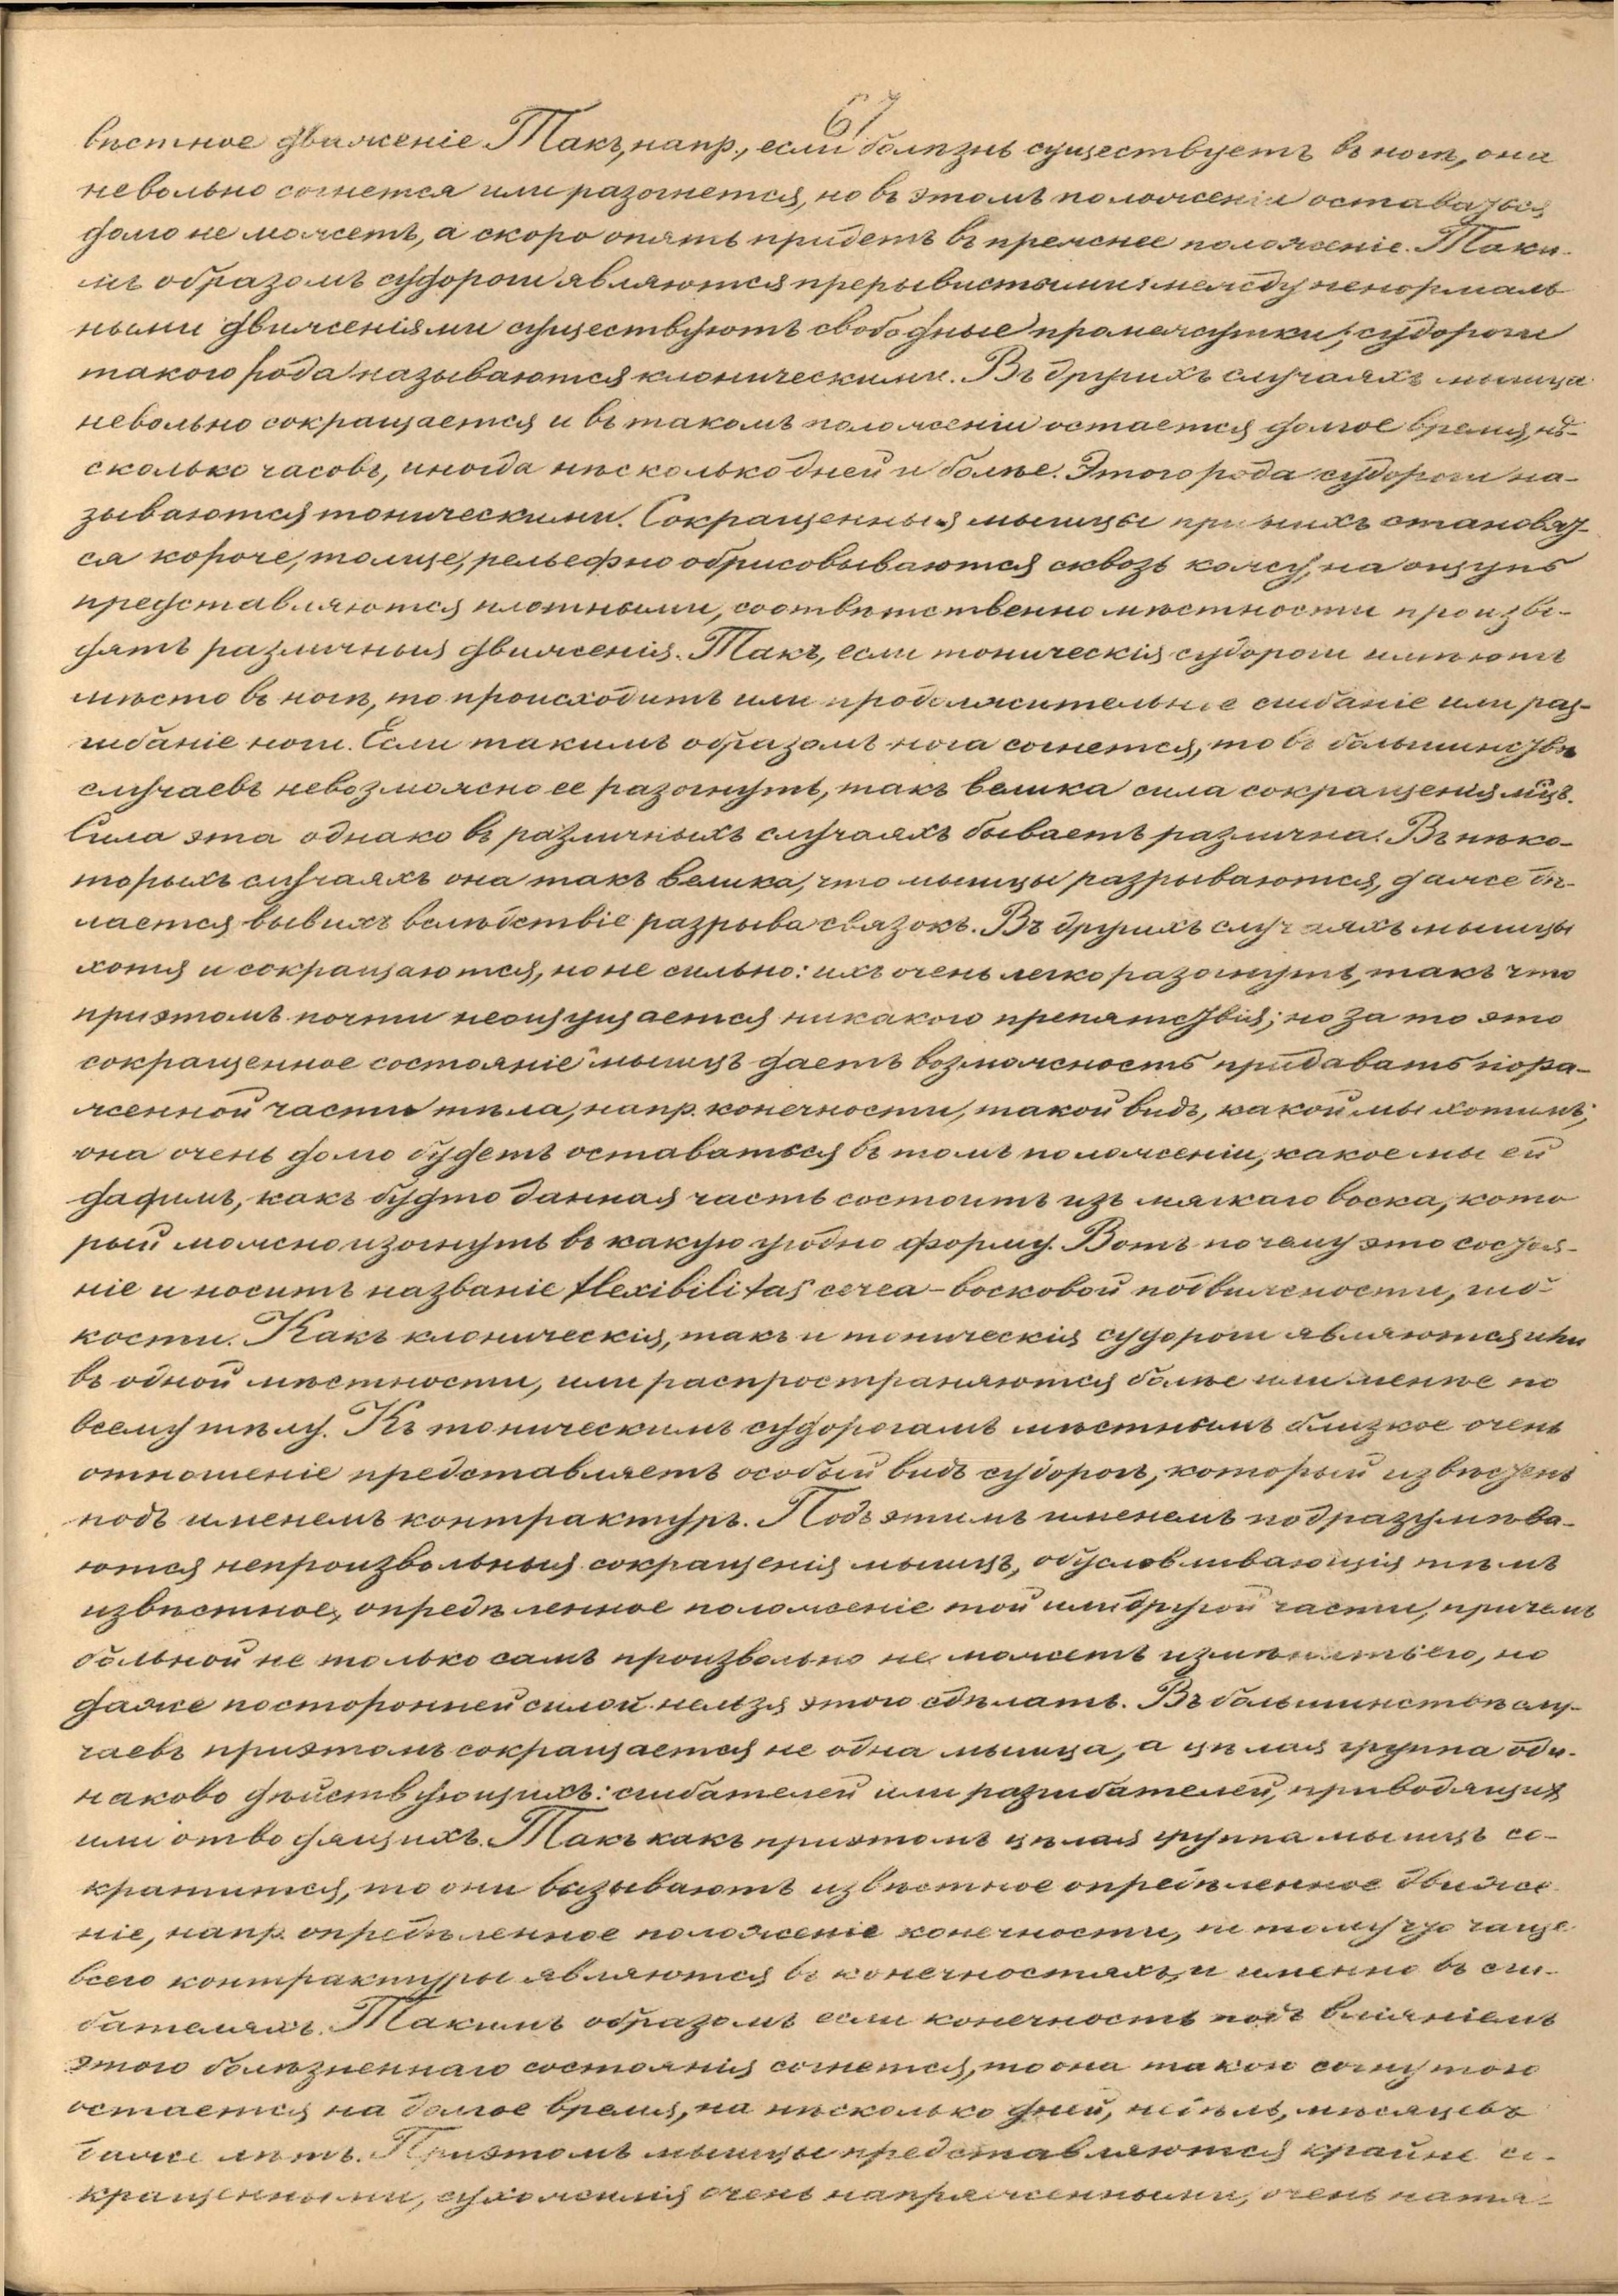 67
вѣстное движеніе Такъ, напр., если болѣзнь существуетъ въ ногѣ, она
невольно согнется или разогнется, но въ этомъ положеніи оставаться
долго не можетъ, а скоро опять придетъ въ прежнее положеніе. Таки-
мъ образомъ судороги являются прерывистыми между ненормаль
ными движеніями существуютъ свободные промежутки; судороги
такого рода называются клоническими. Въ другихъ случаяхъ мышца
невольно сокращается и въ такомъ положеніи остается долгое время, нѣ-
сколько часовъ, иногда нѣсколько дней и болѣе. Этого рода судороги на-
зываются тоническими. Сокращенныя мышцы при нихъ становят-
ся короче, толще, рельефно обрисовываются сквозь кожу, на ощупь
представляются плотными, соотвѣтственно мѣстности произво-
дятъ различныя движенія. Такъ, если тоническія судороги имѣютъ
мѣсто въ ногѣ, то происходитъ или продолжительное сгибаніе или раз-
гибаніе ноги. Если такимъ образомъ нога согнется, то въ большинствѣ
случаевъ невозможно ее разогнуть, такъ велика сила сокращенія мцъ.
Сила эта однако въ различныхъ случаяхъ бываетъ различна. Въ нѣко-
торыхъ случаяхъ она такъ велика, что мышцы разрываются, даже дѣ-
лается вывихъ вслѣдствіе разрыва связокъ. Въ другихъ случаяхъ мышцы
хотя и сокращаются, но не сильно: ихъ очень легко разогнуть, такъ что
при этомъ почти не ощущается никакого препятствія; но за то это
сокращенное состояніе мышцъ даетъ возможность придавать пора-
женной части тѣла, напр. конечности, такой видъ, какой мы хотимъ;
она очень долго будетъ оставаться въ томъ положеніи, какое мы ей
дадимъ, какъ будто данная часть состоитъ изъ мягкаго воска, кото
рый можно изогнуть въ какую угодно форму. Вотъ почему это состоя-
ніе и носитъ названіе flexibilitas cerea - восковой подвижности, гиб-
кости. Какъ клоническія, такъ и тоническія судороги являются или
въ одной мѣстности, или распространяются болѣе или менѣе по
всему тѣлу. Къ тоническимъ судорогамъ мѣстнымъ близкое очень
отношеніе представляетъ особый видъ судорогъ, который извѣстенъ
подъ именемъ контрактуръ. Подъ этимъ именемъ подразумѣва-
ются непроизвольныя сокращенія мышцъ, обусловливающія тѣмъ
извѣстное, опредѣленное положеніе той или другой части, причемъ
больной не только самъ произвольно не можетъ измѣнить его, но
даже посторонней силой нельзя этого сдѣлать. Въ большинствѣ слу-
чаевъ при этомъ сокращается не одна мышца, а цѣлая группа оди-
наково дѣйствующихъ: сгибателей или разгибателей, приводящихъ
или отводящихъ. Такъ какъ при этомъ цѣлая группа мышцъ со-
кратится, то они вызываютъ извѣстное опредѣленное движе
ніе, напр. опредѣленное положеніе конечности, и тому что чаще
всего контрактуры являются въ конечностяхъ, и именно въ сги-
бателяхъ. Такимъ образомъ если конечность подъ вліяніемъ
этого болѣзненнаго состоянія согнется, то она такою согнутою
остается на долгое время, на нѣсколько дней, недѣль, мѣсяцевъ
даже лѣтъ. При этомъ мышцы представляются крайне со-
кращенными, сухожилія очень напряженными, очень натя-